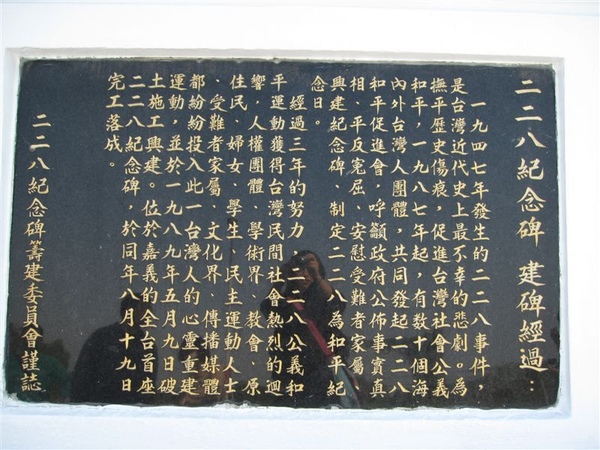 二二八紀念碑 建碑經過:
一九四七年發生的二二八事件,
是台灣近代史上最不幸的悲劇。為
撫平歷史傷痕,促進台灣社會公義
和平,一九八七年起,有數十個海
內外台灣人團體,共同發起二二八
和平促進會,呼籲政府公佈事實真
相、平反冤屈、安慰受難者家屬、
興建紀念碑、制定二二八為和平紀
念日。
經過三年的努力 二二八公義和
平運動獲得台灣民間社會熱烈的迴
響,人權團體、學術界 教會、原
住民、婦女、學生、民主運動人士
、受難者家屬、文化界、傳播媒體
都紛紛投入此一台灣人的心靈重建
運動,並於一九八九年五月九日破
土施工興建。位於嘉義的全台首座
二二八紀念碑,於同年八月十九日
完工落成。
二二八紀念碑籌建委員會謹誌